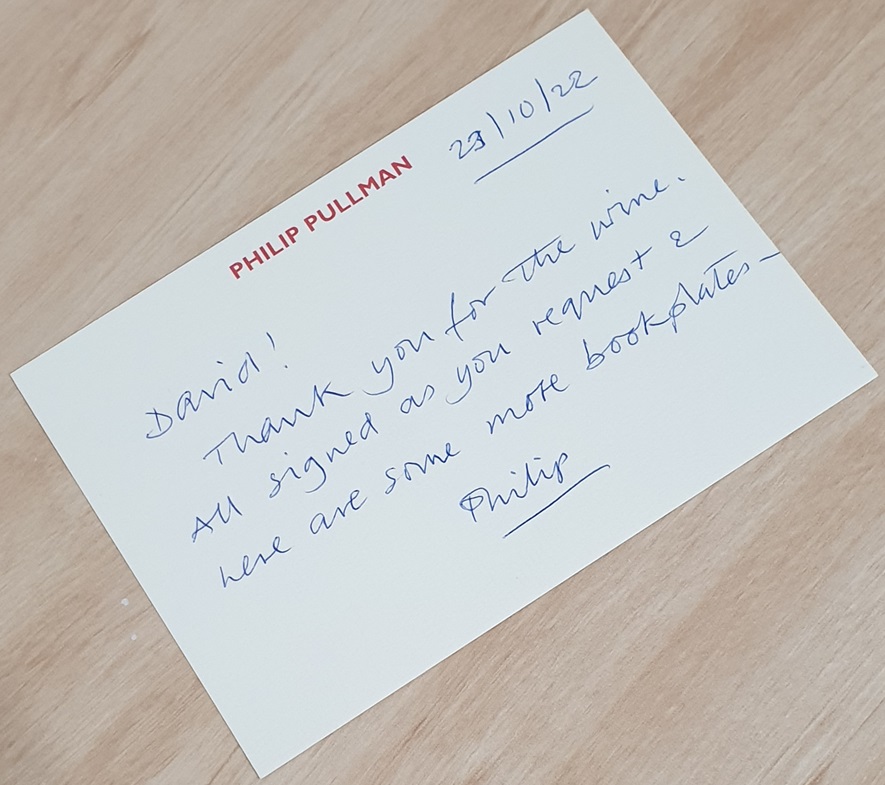 PHILIP PULLMAN
23/10/22
David!
Thank you for the wine.
All signed as you request &
here are some more bookplates —
Philip